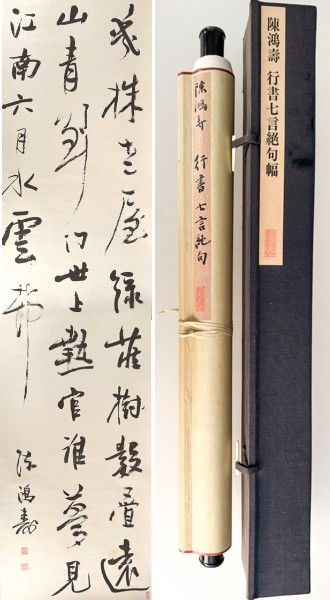 幾株老屋綠蘿樹數疊遠
山青到門世上熱官誰夢見
江南六月水雲邨
陳鴻壽
陳鴻壽 行書七言絶句
陳鴻壽 行書七言絕句幅